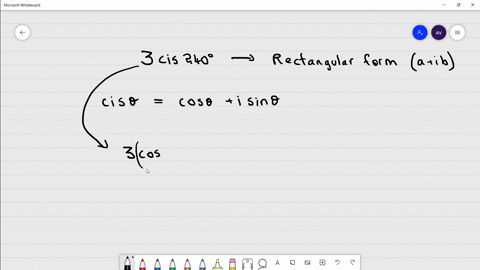 Microsoft Whiteboard
AV
3 cis 240° → Rectangular form (a+ib)
cisθ = cosθ + i sinθ
3(cos